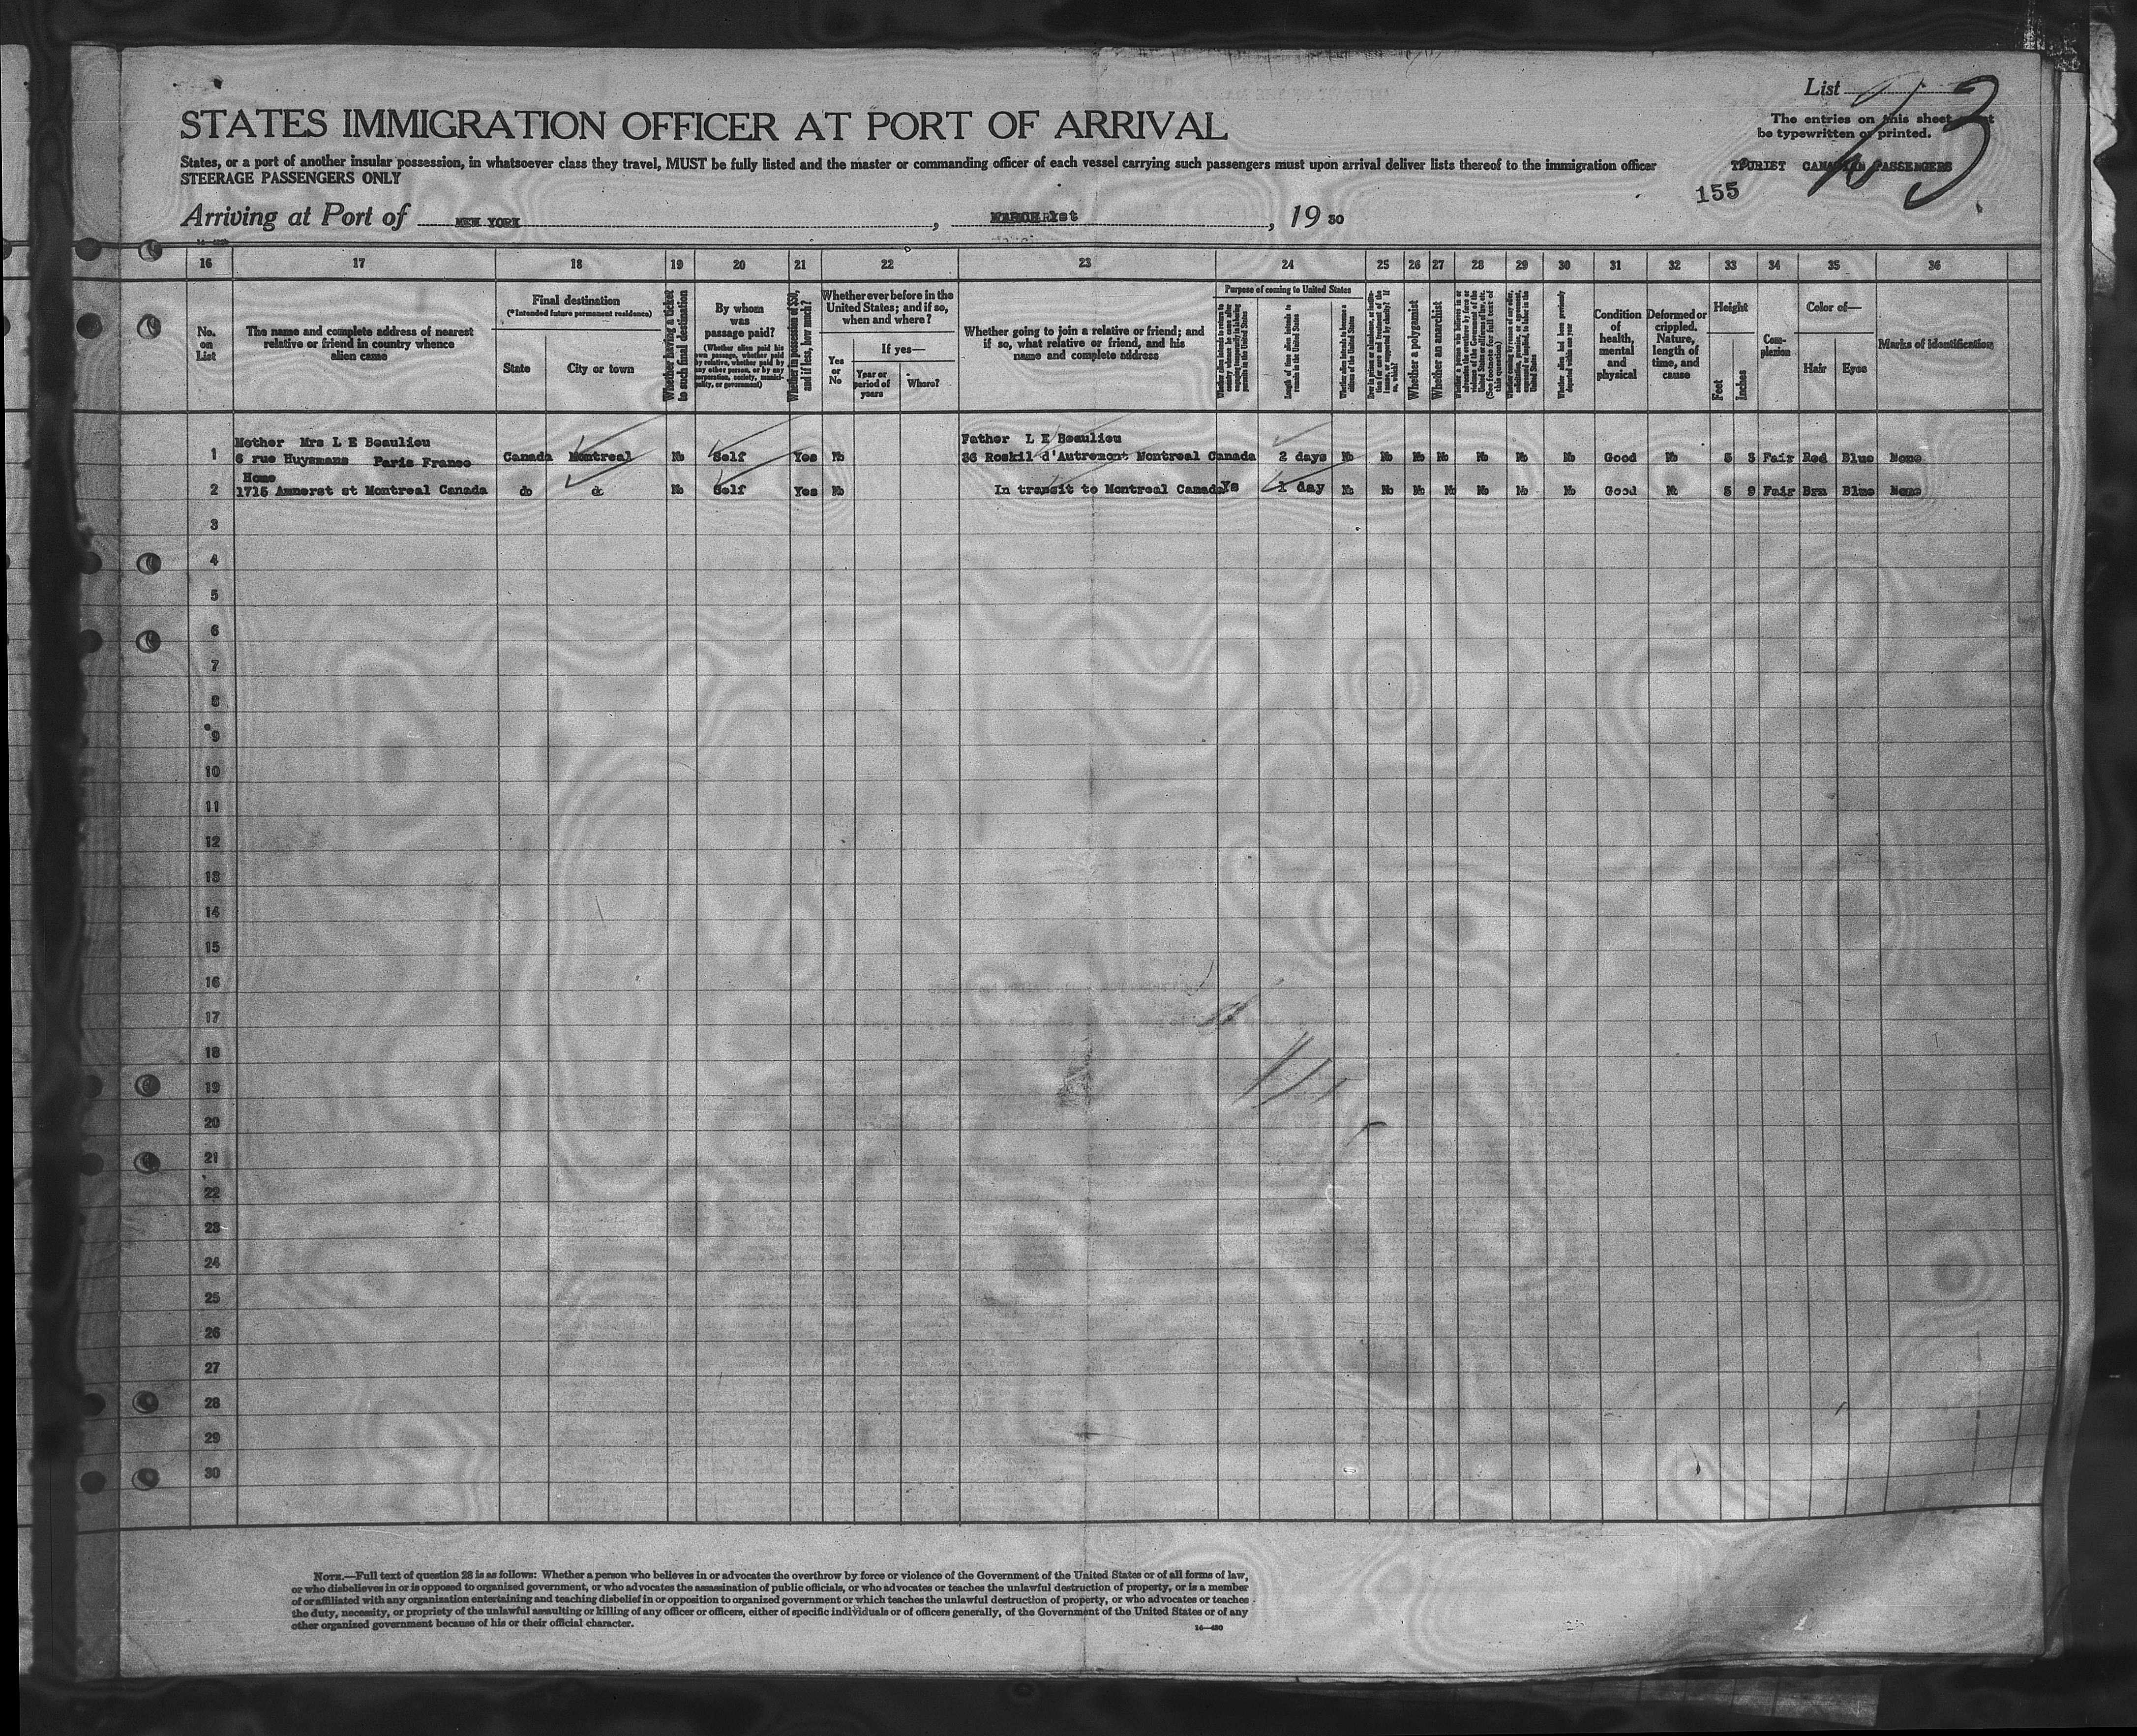 List
The entries on this sheet must
be typewritten or printed.
STATES IMMIGRATION OFFICER AT PORT OF ARRIVAL
States, or a port of another insular possession, in whatsoever class they travel, MUST be fully listed and the master or commanding officer of each vessel carrying such passengers must upon arrival deliver lists thereof to the immigration officer
STEERAGE PASSENGERS ONLY
TOURIST CANADIAN PASSENGERS
155
Arriving at Port of NEW YORK, 1st, 19 30
16 17 18 19 20 21 22 23 24 25 26 27 28 29 30 31 32 33 34 35 36
No. on List
The name and complete address of nearest relative or friend in country whence alien came
Final destination
(*Intended future permanent residence)
State
City or town
Whether having a ticket to such final destination
By whom was passage paid?
(Whether alien paid his own passage, whether paid by relative, whether paid by any other person, or by any corporation, society, municipality, or government)
Whether in possession of $50, and if less, how much?
Whether ever before in the United States; and if so, when and where?
Yes or No
If yes—
Year or period of years
Where?
Whether going to join a relative or friend; and if so, what relative or friend, and his name and complete address
Purpose of coming to United States
Length of time alien intends to remain in the United States
Whether alien intends to become a citizen of the United States
Whether a polygamist
Whether an anarchist
Whether alien had been previously deported within one year
Condition of health, mental and physical
Deformed or crippled. Nature, length of time, and cause
Height
Feet
Inches
Complexion
Color of—
Hair
Eyes
Marks of identification
Mother Mrs L E Beaulieu
Father L E Beaulieu
1 6 rue Huysmans Paris France Canada Montreal No Self Yes No 36 Roskil d'Autremont Montreal Canada 2 days No No No No No No No Good No 5 3 Fair Red Blue None
Home
2 1715 Amherst st Montreal Canada do do No Self Yes No In transit to Montreal Canada Ys 1 day No No No No No No No Good No 5 9 Fair Brn Blue None
3
4
5
6
7
8
9
10
11
12
13
14
15
16
17
18
19
20
21
22
23
24
25
26
27
28
29
30
NOTE.—Full text of question 28 is as follows: Whether a person who believes in or advocates the overthrow by force or violence of the Government of the United States or of all forms of law,
or who disbelieves in or is opposed to organized government, or who advocates the assassination of public officials, or who advocates or teaches the unlawful destruction of property, or is a member
of or affiliated with any organization entertaining and teaching disbelief in or opposition to organized government or which teaches the unlawful destruction of property, or who advocates or teaches
the duty, necessity, or propriety of the unlawful assaulting or killing of any officer or officers, either of specific individuals or of officers generally, of the Government of the United States or of any
other organized government because of his or their official character.
14—480